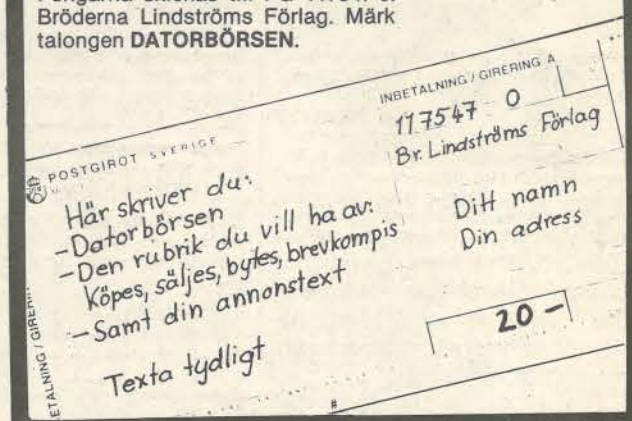 Bröderna Lindströms Förlag. Märk
talongen DATORBÖRSEN.
INBETALNING / GIRERING A
117547-0
Br. Lindströms Förlag
POSTGIROT SVERIGE
Här skriver du:
-Datorbörsen
-Den rubrik du vill ha av:
köpes, säljes, bytes, brevkompis
-Samt din annonstext
Texta tydligt
Ditt namn
Din adress
20-
ETALNING / GIRERIN
#